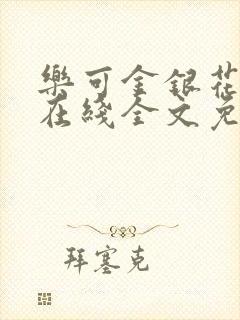 樂可金銀花
在綫全文免
拜塞克